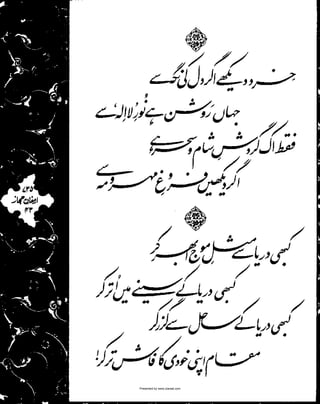 خرد دیکھے اگر دل کی نگہ سے
جہاں روشن ہے نورِ لا اِلٰہ سے
فقط اک گردشِ شام و سحر ہے
اگر دیکھیں فروغِ مہر و مہ سے
کبھی دریا سے مثلِ موج ابھر کر
کبھی دریا کے سینے میں اُتر کر
کبھی دریا کے ساحل سے گزر کر
مقام اپنی خودی کا فاش تر کر!
ارمغان حجاز